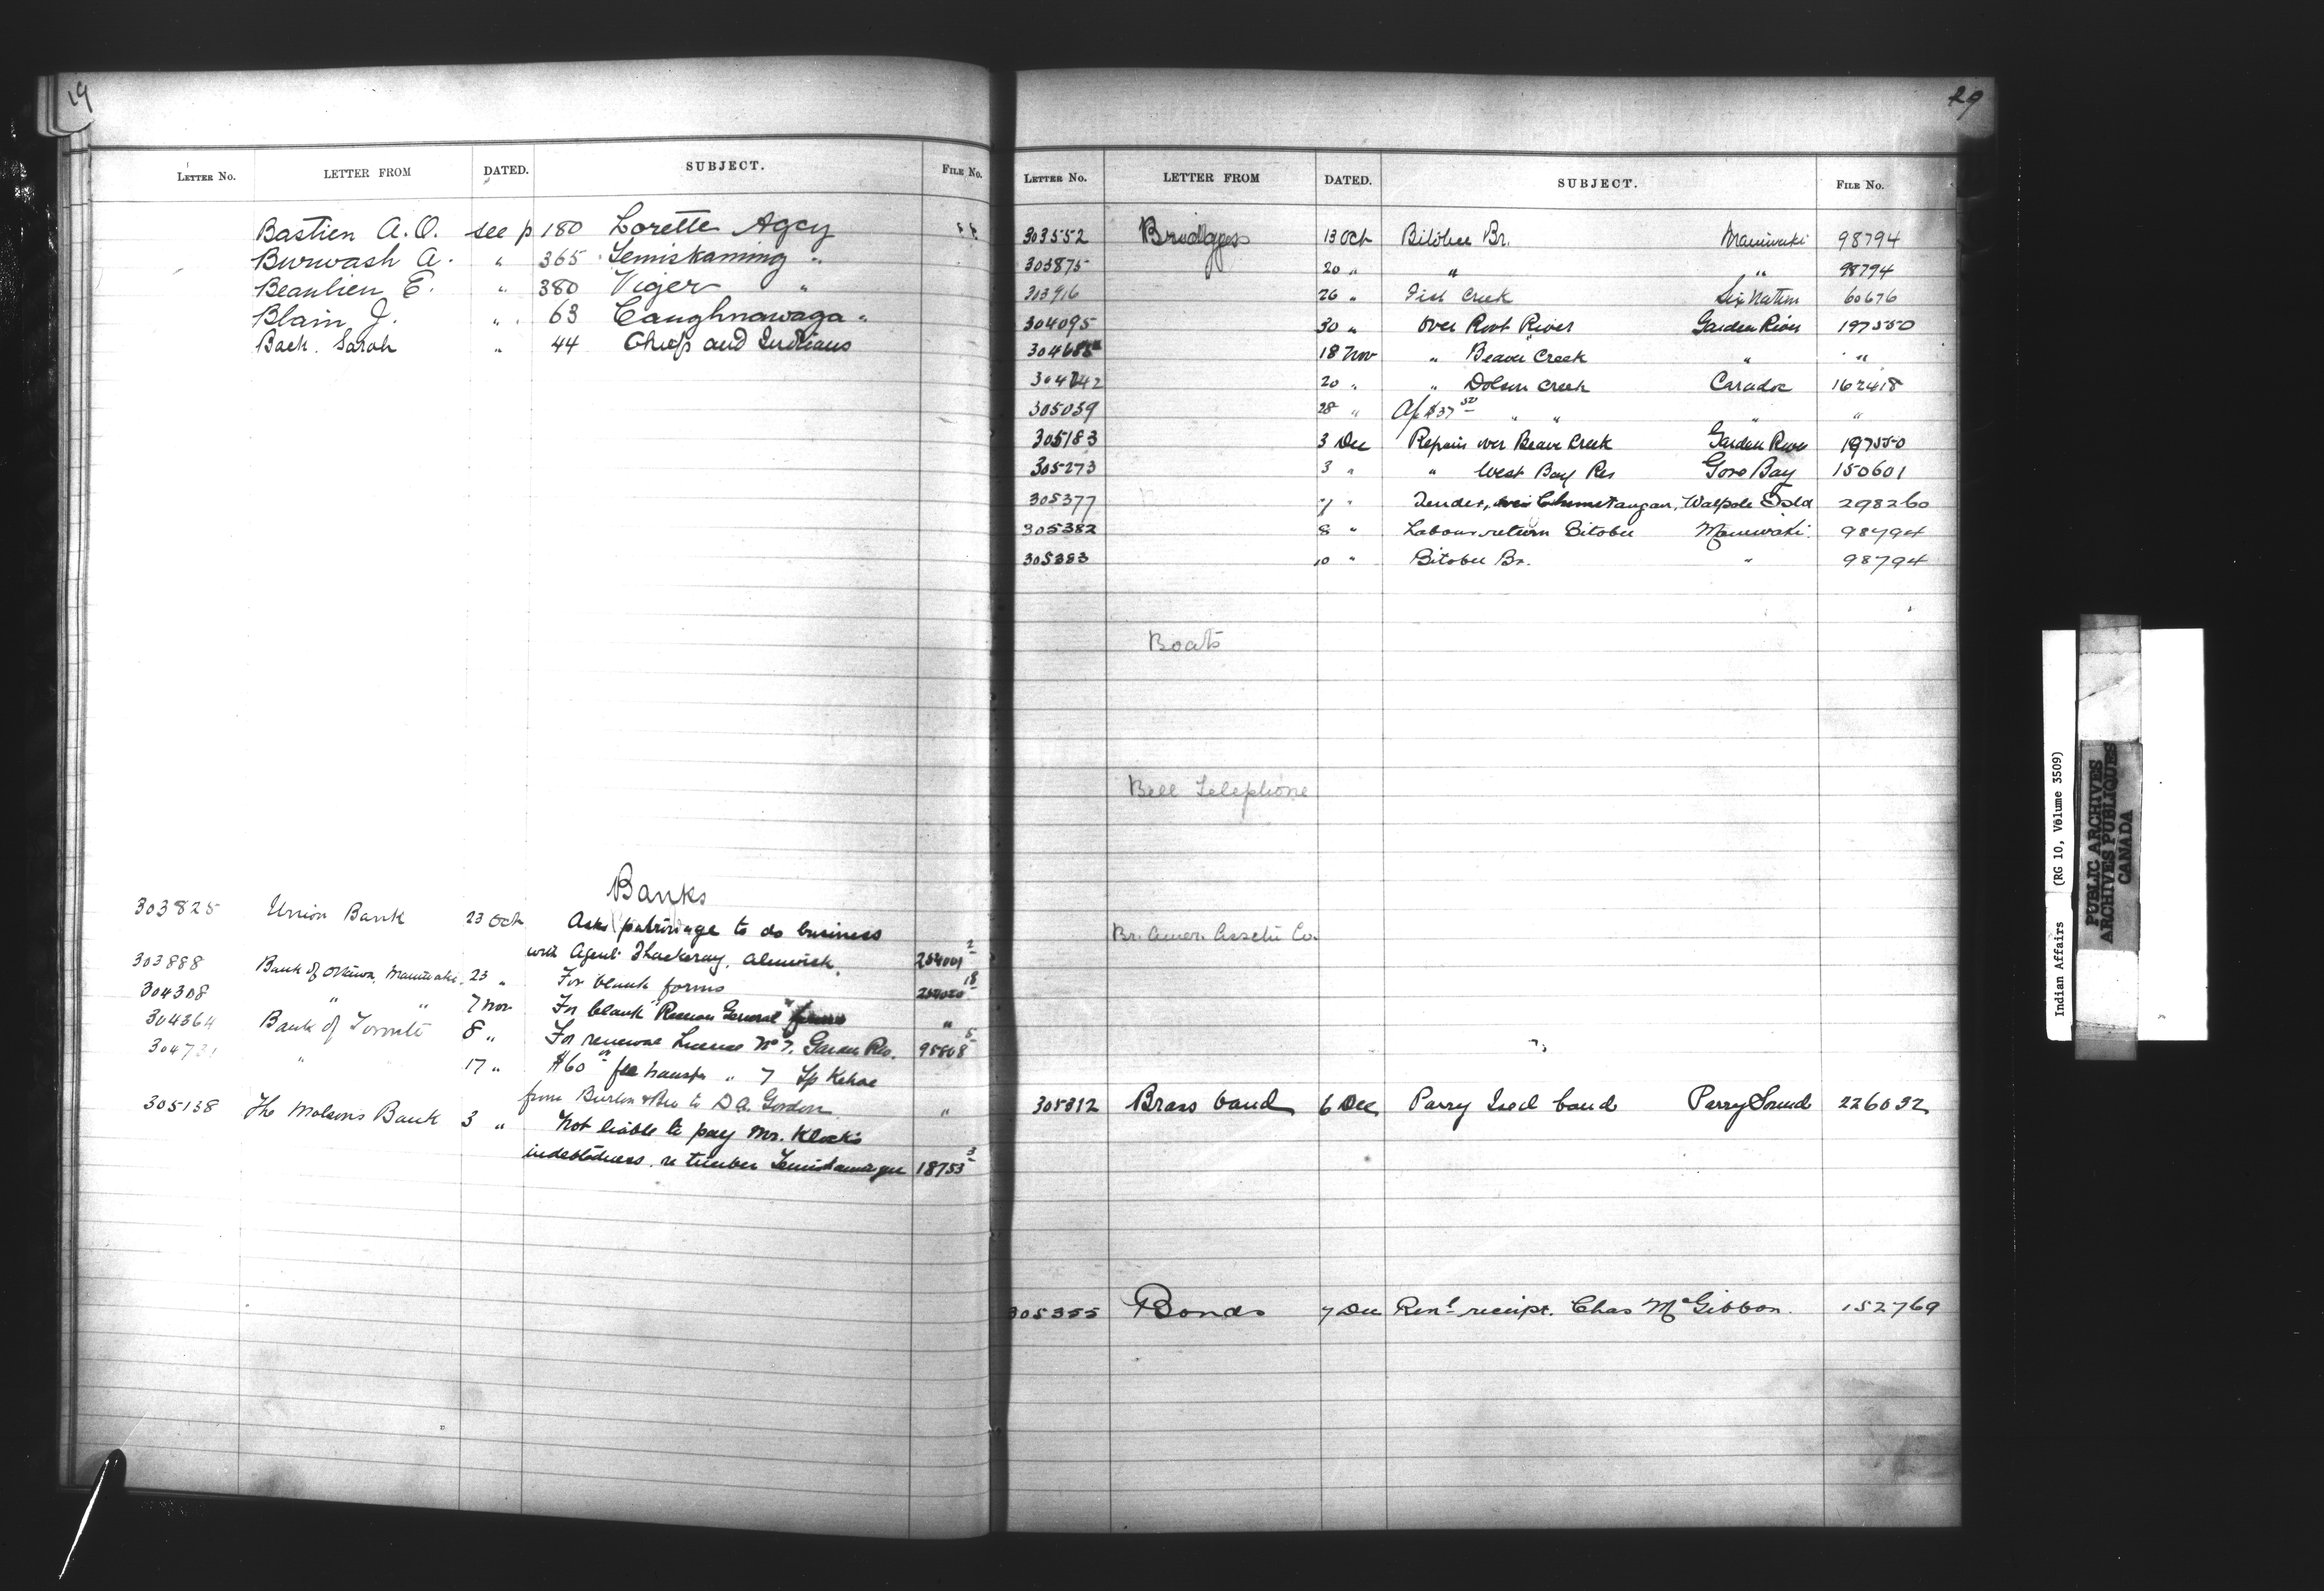 19
LETTER No. LETTER FROM DATED. SUBJECT. FILE No.
Bastien A. O. see p 180 Lorette Agcy
Burwash A. " 365 Temiskaming "
Beaulieu E. " 380 Viger "
Blain J. " 63 Caughnawaga "
Back. Sarah " 44 Chiefs and Indians
Banks
303825 Union Bank 23 Oct Asks patronage to do business
with Agent Thackeray, Alnwick. 254001 2
303888 Bank of Ottawa, Maniwaki. 23 " For blank forms 254020 18
304308 " " 7 Nov For blank Receiver General "
304364 Bank of Toronto 8 " For renewal License No 7. Garden Riv. 95808 5
304731 " 17 " $60 fee transfer " 7 Tp Kehoe
from Burton & Bro to D A. Gordon "
305138 The Molsons Bank 3 " Not liable to pay Mr. Klock's
indebtedness re timber Temiskamingue 18753 3
29
LETTER No. LETTER FROM DATED. SUBJECT. FILE No.
303552 Bridges 13 Oct Bitobee Br. Maniwaki 98794
303875 20 " " " 98794
303916 26 " Fish Creek Six Nation 60676
304095 30 " Over Root River Garden River 197550
18 Nov " Beaver Creek " "
304742 20 " " Dolsen Creek Caradoc 162418
305039 28 " $37 50 " " " "
305183 3 Dec Repairs over Beaver Creek Garden River 197550
305273 3 " " West Bay Res Gore Bay 150601
305377 7 " Tender, Walpole Isld 298260
305382 8 " Labour return Bitobee Maniwaki. 98794
305383 10 " Bitobee Br. " 98794
Boats
Bell Telephone
Br. Amer. Co.
305312 Brass band 6 Dec Parry Isld band Parry Sound 226032
305355 Bonds 7 Dec Renl receipt. Chas McGibbon. 152769
Indian Affairs (RG 10, Volume 3509)
PUBLIC ARCHIVES
ARCHIVES PUBLIQUES
CANADA